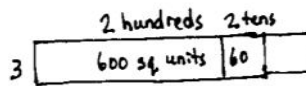 2 hundreds 2 tens
3 600 sq units 60